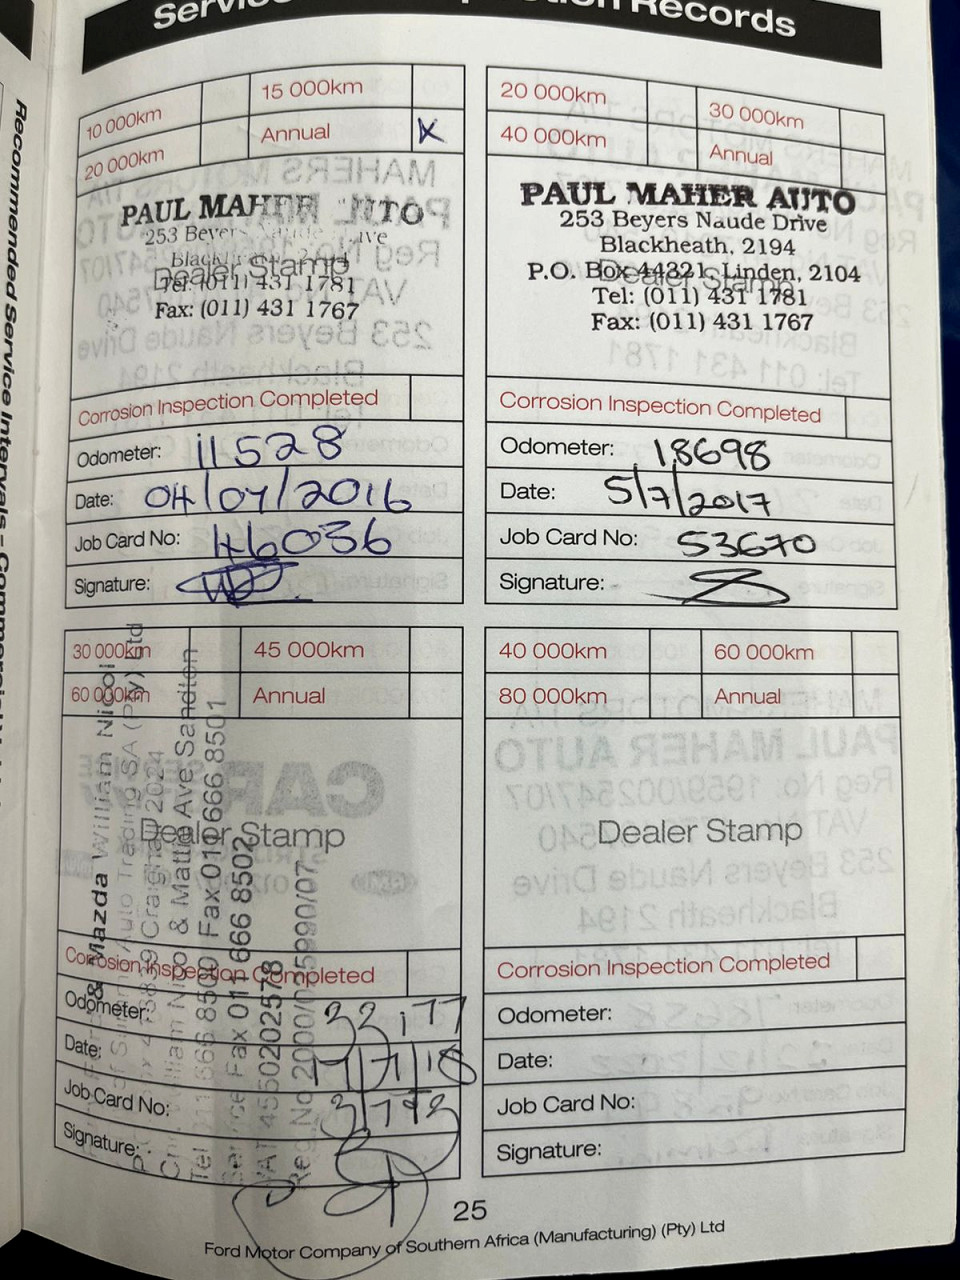 Records
Recommended Service Intervals - Commercial
10 000km
15 000km
20 000km
Annual
X
PAUL MAHER AUTO
253 Beyers Naude Drive
Dealer Stamp
Tel: (011) 431 1781
Fax: (011) 431 1767
Corrosion Inspection Completed
Odometer: 11528
Date: 04/07/2016
Job Card No: 46036
Signature:
20 000km
30 000km
40 000km
Annual
PAUL MAHER AUTO
253 Beyers Naude Drive
Blackheath, 2194
P.O. Box 44321, Linden, 2104
Dealer Stamp
Tel: (011) 431 1781
Fax: (011) 431 1767
Corrosion Inspection Completed
Odometer: 18698
Date: 5/7/2017
Job Card No: 53670
Signature:
30 000km
45 000km
60 000km
Annual
Dealer Stamp
Mazda William Nicol
Auto Trading SA (Pty) Ltd
2024
& Mattie Ave Sandton
Fax 011 666 8501
Fax 011 666 8502
VAT 4550202578
Corrosion Inspection Completed
Odometer:
Date: 17/7/18
Job Card No:
Signature:
40 000km
60 000km
80 000km
Annual
Dealer Stamp
Corrosion Inspection Completed
Odometer:
Date:
Job Card No:
Signature:
25
Ford Motor Company of Southern Africa (Manufacturing) (Pty) Ltd